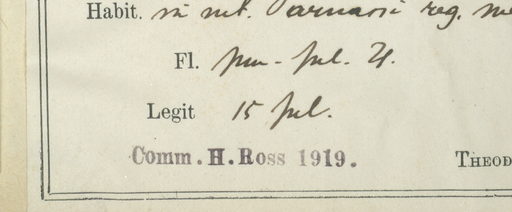 Habit. in mt. Parnassi reg.
Fl. jun - jul. ♃.
Legit 15 jul.
Comm. H. Ross 1919.
THEOD